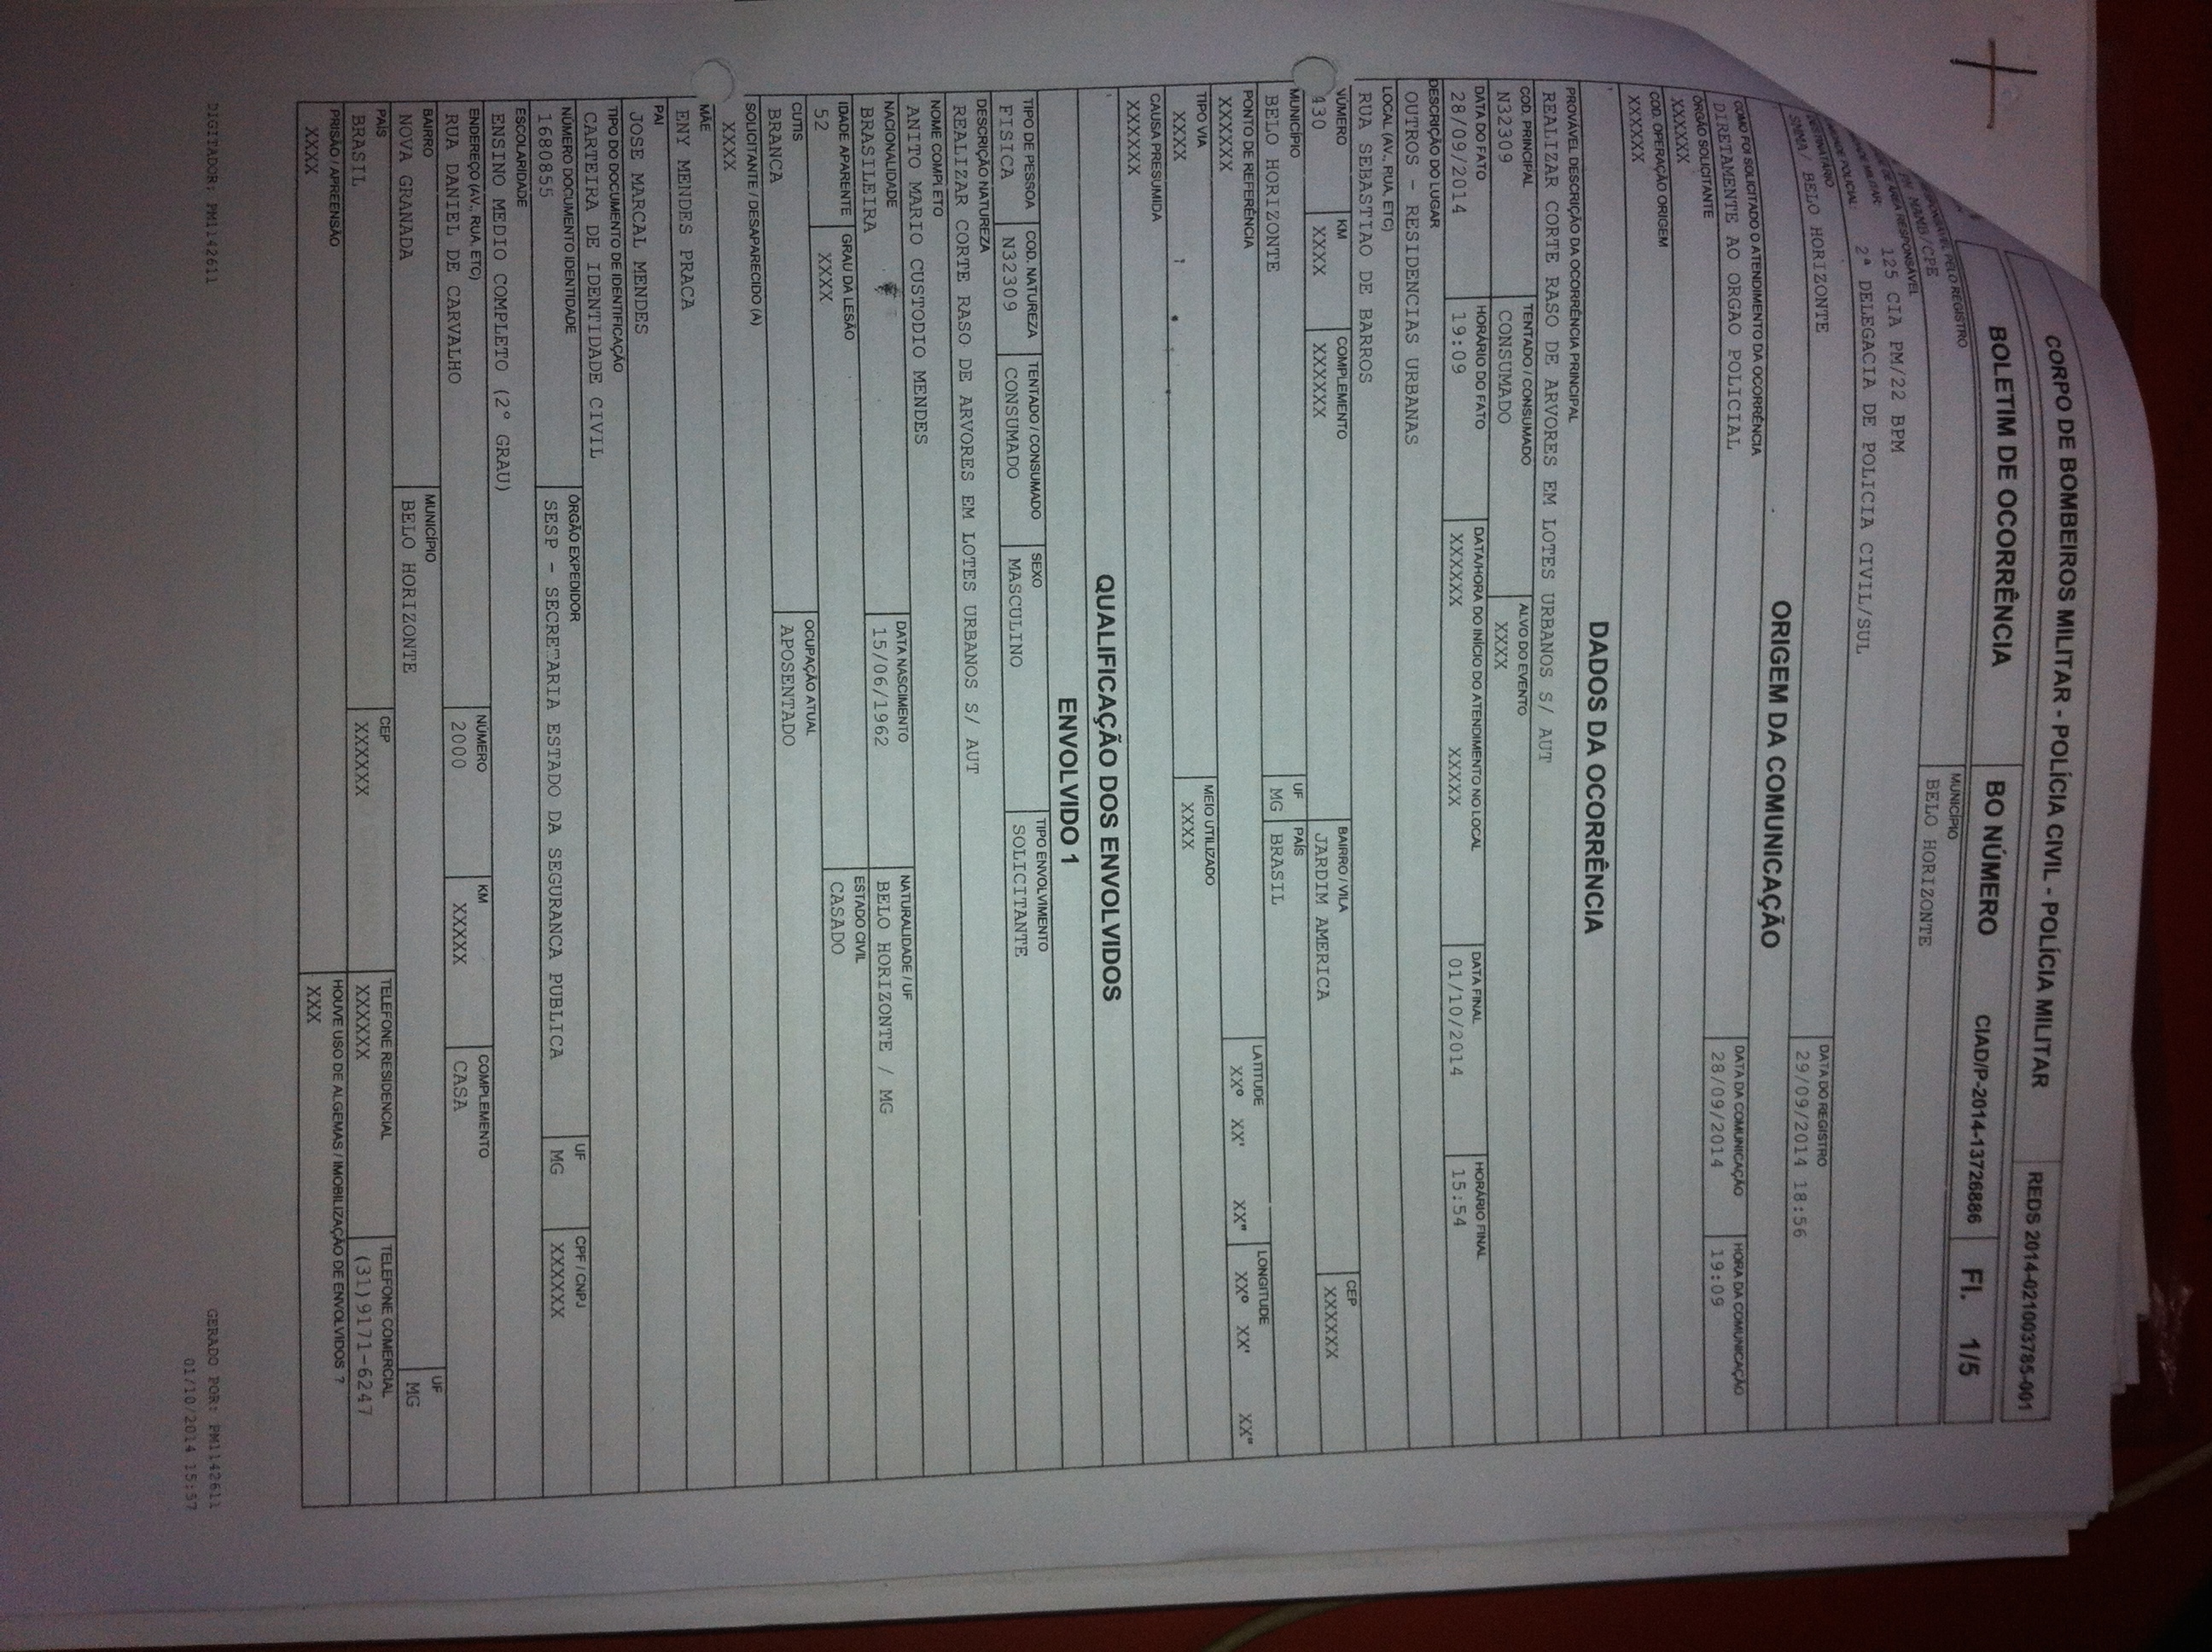 CORPO DE BOMBEIROS MILITAR - POLÍCIA CIVIL - POLÍCIA MILITAR REDS 2014-021003785-001
BOLETIM DE OCORRÊNCIA BO NÚMERO CIAD/P-2014-13726886 Fl. 1/5
PELO REGISTRO MUNICÍPIO
BELO HORIZONTE
DE ÁREA RESPONSÁVEL
125 CIA PM/22 BPM
2ª DELEGACIA DE POLICIA CIVIL/SUL
DESTINATÁRIO DATA DO REGISTRO
SMMA/ BELO HORIZONTE 29/09/2014 18:56
ORIGEM DA COMUNICAÇÃO
COMO FOI SOLICITADO O ATENDIMENTO DA OCORRÊNCIA DATA DA COMUNICAÇÃO HORA DA COMUNICAÇÃO
DIRETAMENTE AO ORGAO POLICIAL 28/09/2014 19:09
ÓRGÃO SOLICITANTE
XXXXXX
COD. OPERAÇÃO ORIGEM
XXXXXX
DADOS DA OCORRÊNCIA
PROVÁVEL DESCRIÇÃO DA OCORRÊNCIA PRINCIPAL
REALIZAR CORTE RASO DE ARVORES EM LOTES URBANOS S/ AUT
COD. PRINCIPAL TENTADO / CONSUMADO ALVO DO EVENTO
N32309 CONSUMADO XXXX
DATA DO FATO HORÁRIO DO FATO DATA/HORA DO INÍCIO DO ATENDIMENTO NO LOCAL DATA FINAL HORÁRIO FINAL
28/09/2014 19:09 XXXXXX XXXXX 01/10/2014 15:54
DESCRIÇÃO DO LUGAR
OUTROS - RESIDENCIAS URBANAS
LOCAL (AV., RUA, ETC)
RUA SEBASTIAO DE BARROS
NÚMERO KM COMPLEMENTO BAIRRO / VILA CEP
430 XXXX XXXXXX JARDIM AMERICA XXXXXX
MUNICÍPIO UF PAÍS
BELO HORIZONTE MG BRASIL
PONTO DE REFERÊNCIA LATITUDE LONGITUDE
XXXXXX XXº XX' XX" XXº XX' XX"
TIPO VIA MEIO UTILIZADO
XXXX XXXX
CAUSA PRESUMIDA
XXXXXX
QUALIFICAÇÃO DOS ENVOLVIDOS
ENVOLVIDO 1
TIPO DE PESSOA COD. NATUREZA TENTADO / CONSUMADO SEXO TIPO ENVOLVIMENTO
FISICA N32309 CONSUMADO MASCULINO SOLICITANTE
DESCRIÇÃO NATUREZA
REALIZAR CORTE RASO DE ARVORES EM LOTES URBANOS S/ AUT
NOME COMPLETO
ANITO MARIO CUSTODIO MENDES
NACIONALIDADE DATA NASCIMENTO NATURALIDADE / UF
BRASILEIRA 15/06/1962 BELO HORIZONTE / MG
IDADE APARENTE GRAU DA LESÃO ESTADO CIVIL
52 XXXX CASADO
CUTIS OCUPAÇÃO ATUAL
BRANCA APOSENTADO
SOLICITANTE / DESAPARECIDO (A)
XXXX
MÃE
ENY MENDES PRACA
PAI
JOSE MARCAL MENDES
TIPO DO DOCUMENTO DE IDENTIFICAÇÃO
CARTEIRA DE IDENTIDADE CIVIL
NÚMERO DOCUMENTO IDENTIDADE ÓRGÃO EXPEDIDOR UF CPF / CNPJ
1680855 SESP - SECRETARIA ESTADO DA SEGURANCA PUBLICA MG XXXXXX
ESCOLARIDADE
ENSINO MEDIO COMPLETO (2º GRAU)
ENDEREÇO (AV., RUA, ETC) NÚMERO KM COMPLEMENTO
RUA DANIEL DE CARVALHO 2000 XXXXX CASA
BAIRRO MUNICÍPIO UF
NOVA GRANADA BELO HORIZONTE MG
PAÍS CEP TELEFONE RESIDENCIAL TELEFONE COMERCIAL
BRASIL XXXXXX XXXXXX (31)9171-6247
PRISÃO / APREENSÃO HOUVE USO DE ALGEMAS / IMOBILIZAÇÃO DE ENVOLVIDOS ?
XXXX XXX
DIGITADOR: PM1142611 GERADO POR: PM1142611
01/10/2014 15:57